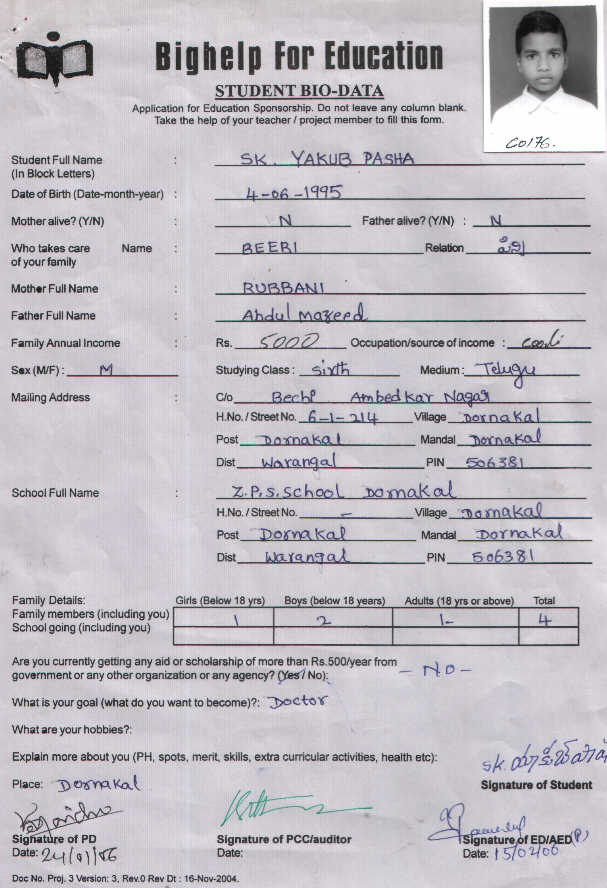 Bighelp For Education
STUDENT BIO-DATA
Application for Education Sponsorship. Do not leave any column blank.
Take the help of your teacher / project member to fill this form.
C0176.
Student Full Name : SK. YAKUB PASHA
(In Block Letters)
Date of Birth (Date-month-year) : 4-06-1995
Mother alive? (Y/N) : N Father alive? (Y/N) : N
Who takes care Name : BEEBI Relation
of your family
Mother Full Name : RUBBANI
Father Full Name : Abdul Mazeed
Family Annual Income : Rs. 5000 Occupation/source of income : cooli
Sex (M/F) : M Studying Class : sixth Medium : Telugu
Mailing Address : C/o Bechi Ambedkar Nagar
H.No. / Street No. 6-1-214 Village Dornakal
Post Dornakal Mandal Dornakal
Dist Warangal PIN 506381
School Full Name : Z.P.S. School Dornakal
H.No. / Street No. - Village Dornakal
Post Dornakal Mandal Dornakal
Dist Warangal PIN 506381
Family Details: Girls (Below 18 yrs) Boys (below 18 years) Adults (18 yrs or above) Total
Family members (including you) 1 2 1- 4
School going (including you)
Are you currently getting any aid or scholarship of more than Rs.500/year from
government or any other organization or any agency? (Yes/ No): - NO -
What is your goal (what do you want to become)?: Doctor
What are your hobbies?:
Explain more about you (PH, spots, merit, skills, extra curricular activities, health etc):
SK.
Place: Dornakal Signature of Student
Signature of PD Signature of PCC/auditor Signature of ED/AED (P)
Date: 24/01/06 Date: Date: 15/02/06
Doc No. Proj. 3 Version: 3, Rev.0 Rev Dt : 16-Nov-2004.